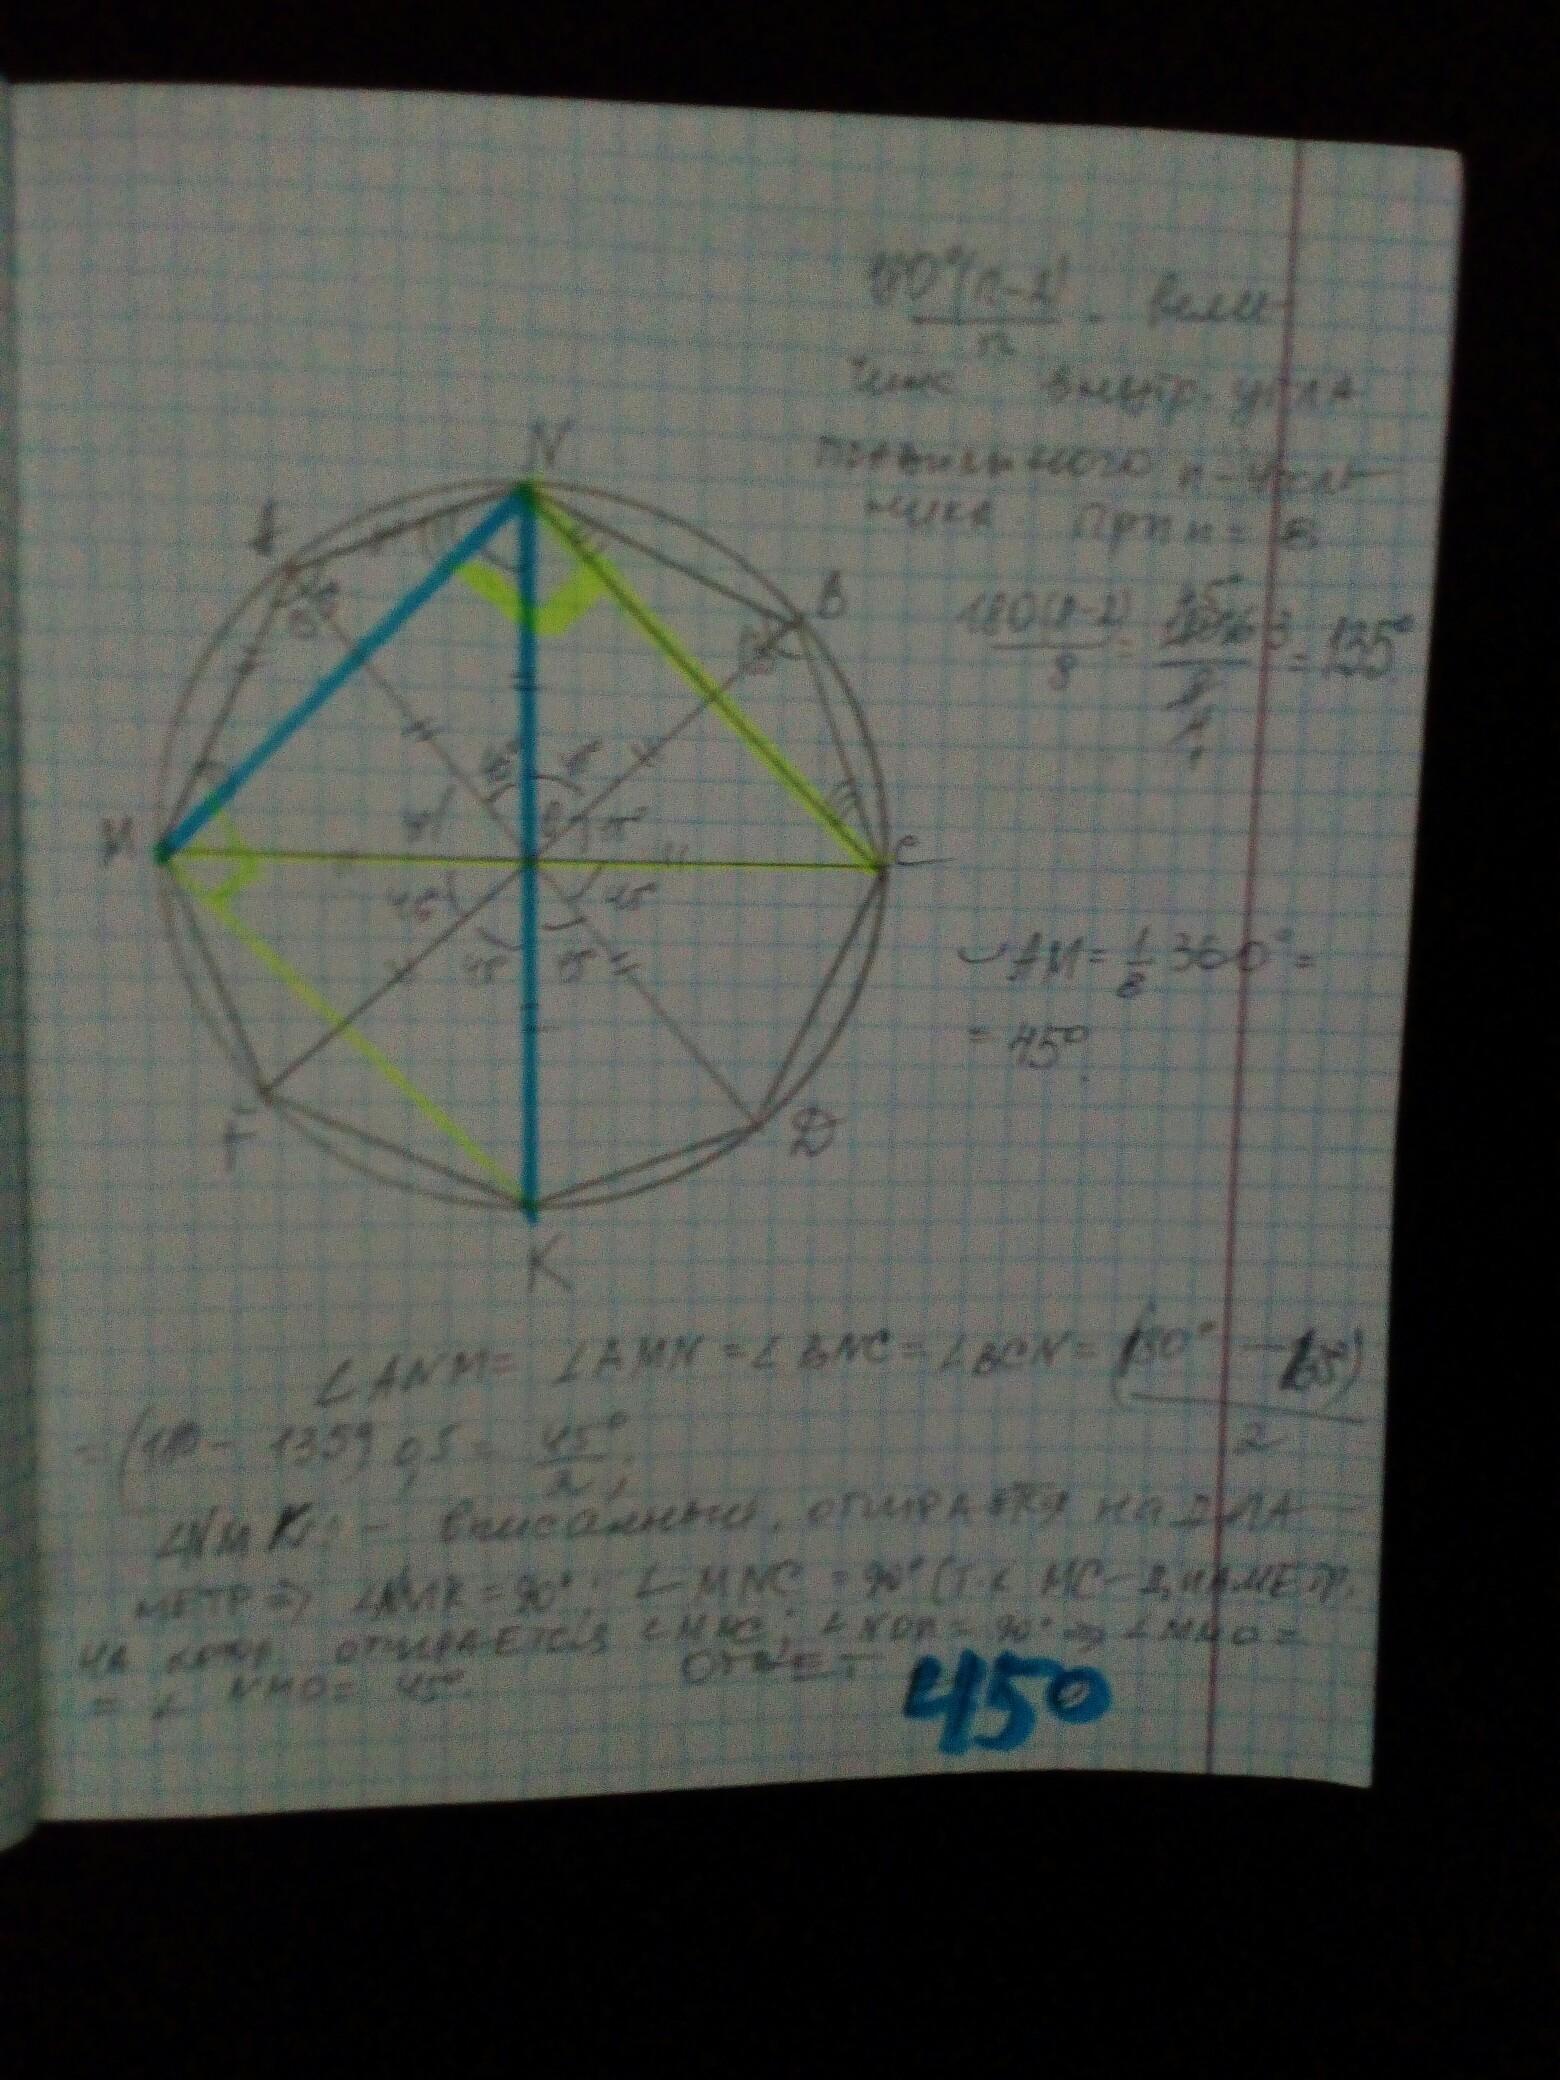 180°(n-2)
n
- вели-
чина внутр. угла
правильного n-уголь
ника При n = 8
180(8-2)
8
=
= 135°
N
A
B
M
C
F
D
K
O
45°
45°
45°
45°
45°
45°
45°
◡AM = 1/8 360° =
= 45°.
∠ANM = ∠AMN = ∠BNC = ∠BCN = (180° - 135°)
2
= (180 - 135°) 0,5 = 45°/2;
∠NMK - вписанный, опирается на диа-
метр ⇒ ∠NMK = 90°. ∠MNC = 90° (т.к MC - диаметр,
на котор опирается ∠MNC; ∠NOM = 90° ⇒ ∠MNO =
= ∠NMO = 45°
Ответ 45°